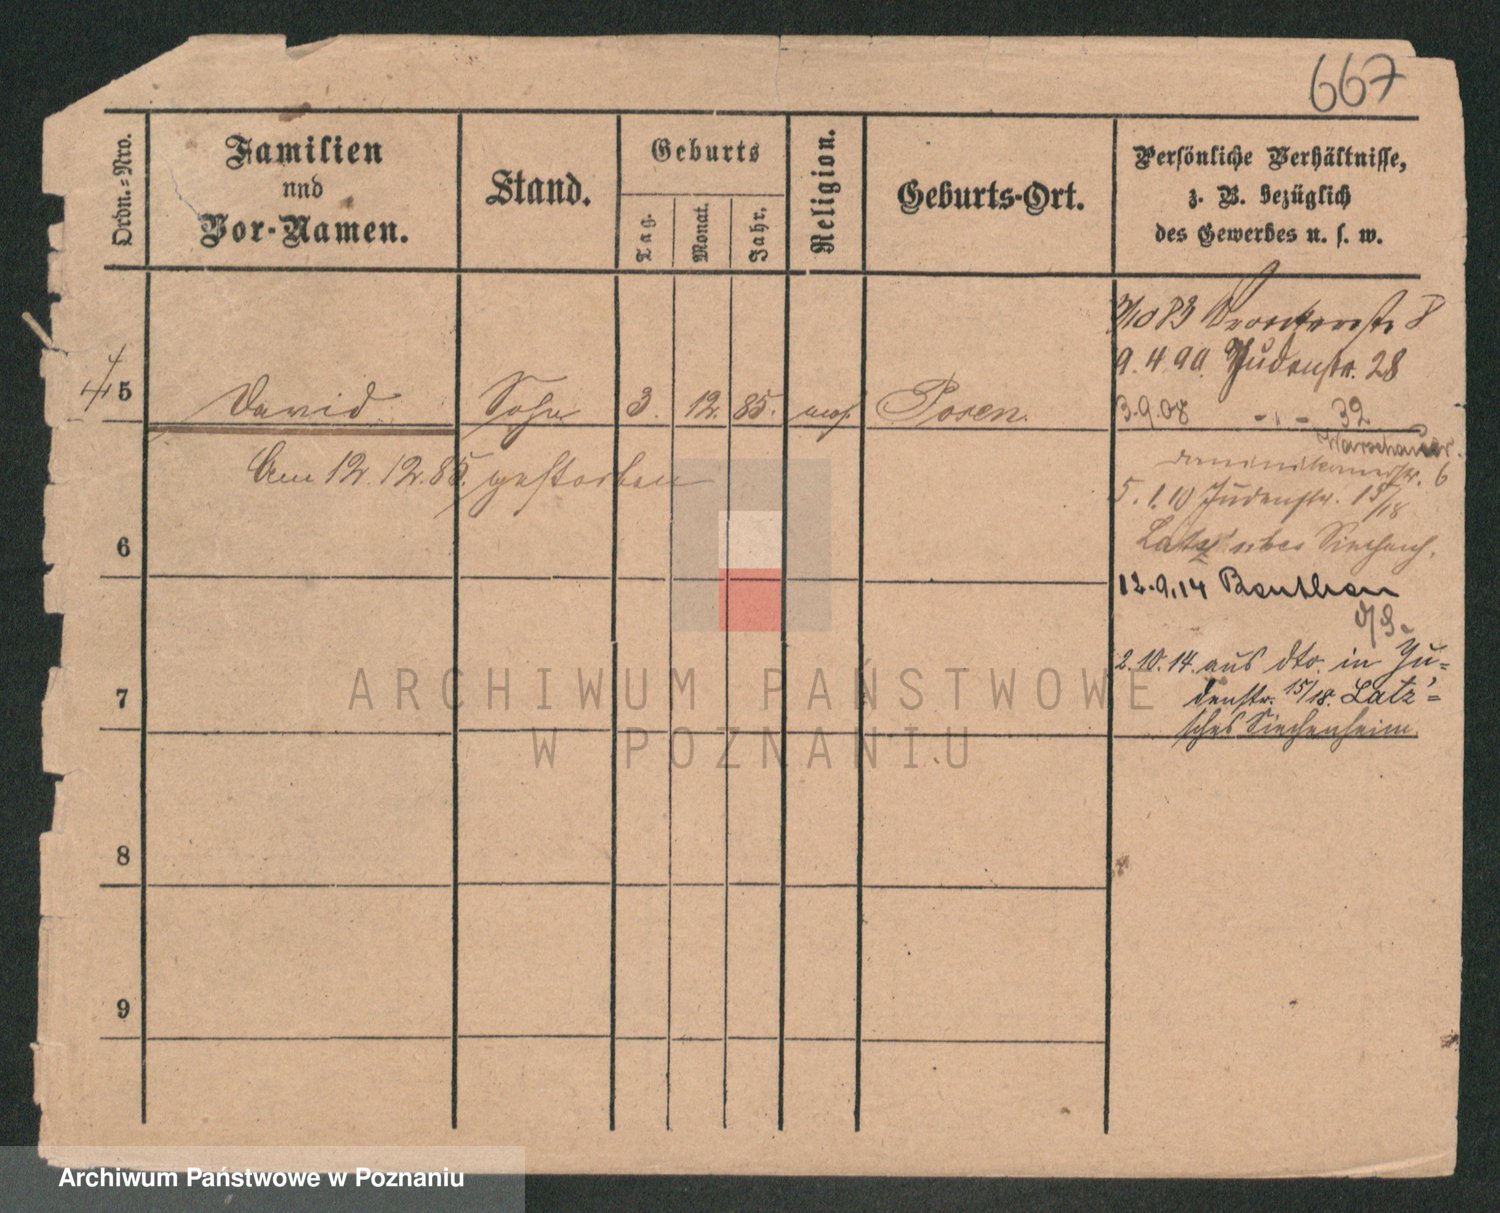 667
Ordn.=Nro.
Familien
und
Vor-Namen.
Stand.
Geburts
Tag.
Monat.
Jahr.
Religion.
Geburts-Ort.
Persönliche Verhältnisse,
z. B. bezüglich
des Gewerbes u. s. w.
4 5 David Sohn 3. 12. 85. mos. Posen.
Am 12.12.85. gestorben
6
7
8
9
3/10 83 8
9.4.90. Judenstr. 28
3.9.08 - " - 32
Warschauer
Dominikanerstr. 6
5.1.10 Judenstr. 15/18
Latz'sches Siechenh.
12.9.14 Beuthen
O/S.
2.10.14. aus dto. in Ju=
denstr. 15/18. Latz'=
sches Siechenheim
ARCHIWUM PAŃSTWOWE
W POZNANIU
Archiwum Państwowe w Poznaniu